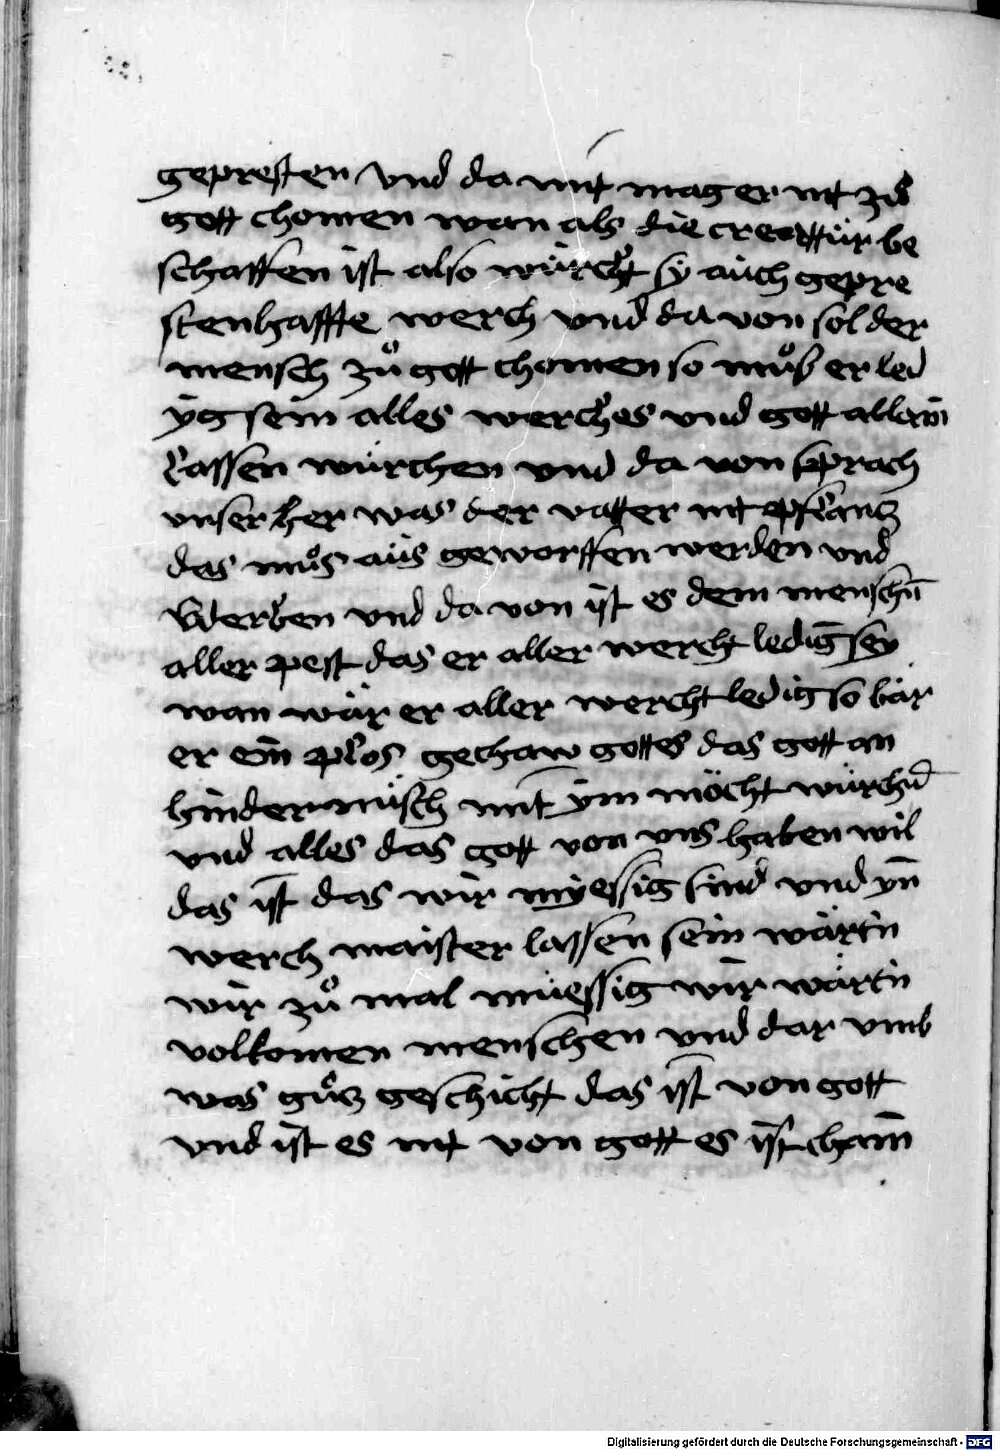 gepresten vnd da mit mag er nit zů
gott chomen wan als die creattür be
schaffen ist also würcht sy aüch gepre
stenhaffte werch vnd da von sol der
mensch zů gott chomen so můs er led
ÿg sein alles werches vnd gott allain
lassen würchen vnd da von sprach
vnser her was der vatter nit epflantz
das můs aüs geworffen werden vnd
verderben vnd da von ist es dem menschn̄
aller pest das er aller wercht ledig sey
wan wär er aller wercht ledig so wär
er ein plos gechaw gottes das gott an
hindernüsch mit ÿm möcht würchn̄
vnd alles das gott von vns haben wil
das ist das wir myessig sind vnd yn̄
werch maister lassen sein wärtn
wir zů mal müessig wir wärtn
volkomen menschen vnd dar vmb
was gůtz geschicht das ist von gott
vnd ist es nit von gott es ist chain
Digitalisierung gefördert durch die Deutsche Forschungsgemeinschaft - DFG